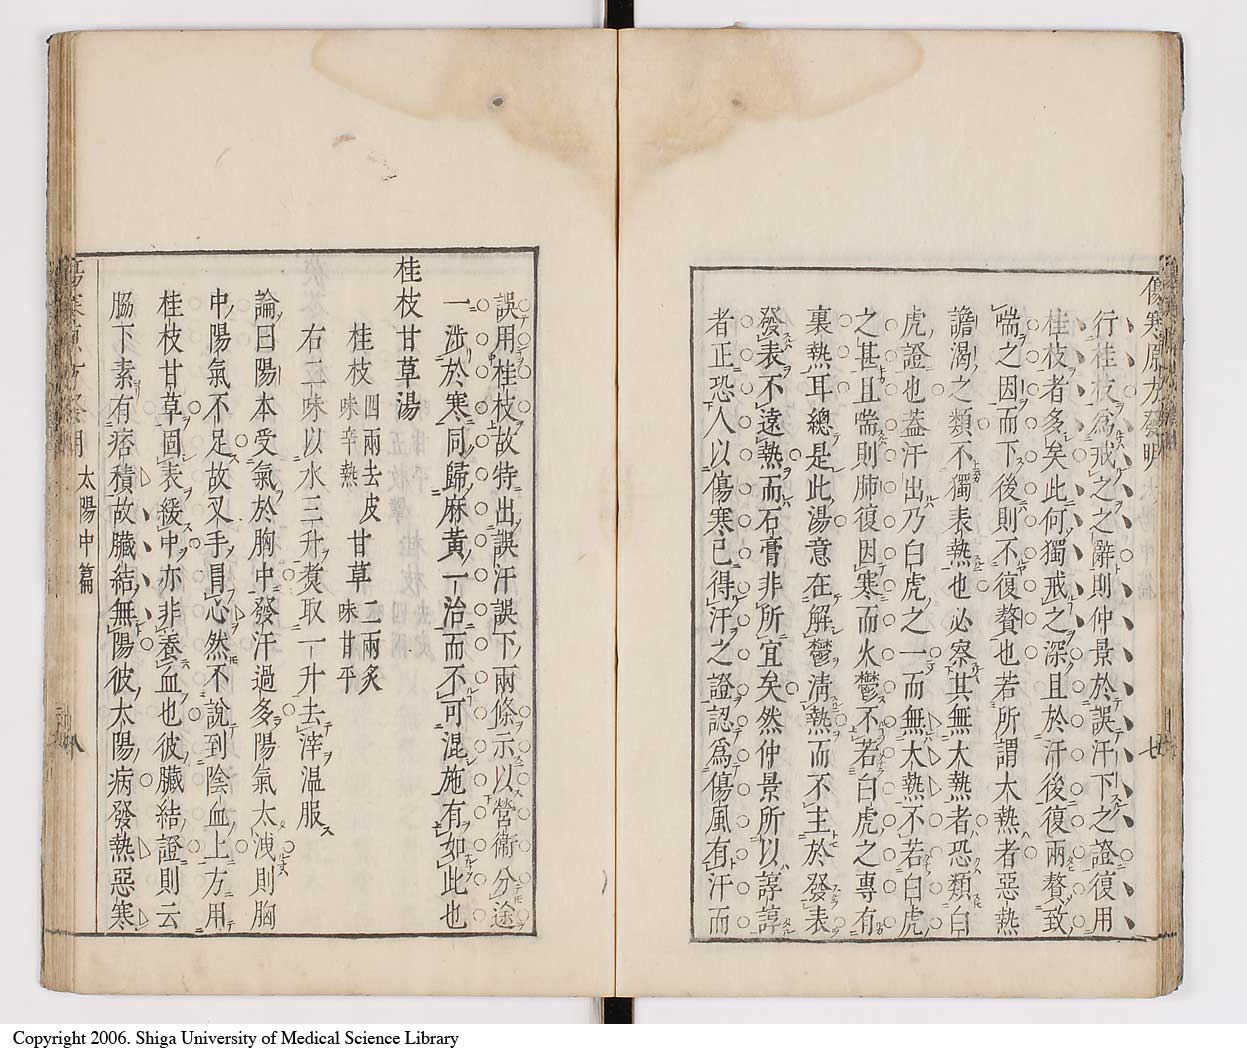 傷寒原方發明
七
行桂枝爲戒之之辭則仲景於誤汗下之證復用
桂枝者多矣此何獨戒之深且於汗後復兩贅致
喘之因而下後則不復贅也若所謂大熱者惡熱
譫渴之類不獨表熱也必察其無大熱者恐類白
虎證也蓋汗出乃白虎之一而無大熱不若白虎
之甚且喘則肺復因寒而火鬱不若白虎之專有
裏熱耳總是此湯意在解鬱清熱而不主於發表
發表不遠熱而石膏非所宜矣然仲景所以諄諄
者正恐人以傷寒已得汗之證認爲傷風有汗而
誤用桂枝故特出誤汗誤下兩條示以營衛分途
一涉於寒同歸麻黃一治而不可混施有如此也
桂枝甘草湯
桂枝 四兩去皮 味辛熱 甘草 二兩炙 味甘平
右二味以水三升煑取一升去滓温服
論曰陽本受氣於胸中發汗過多陽氣太洩則胸
中陽氣不足故叉手冒心然不說到陰血上方用
桂枝甘草固表緩中亦非養血也彼臟結證則云
脇下素有痞積故臟結無陽彼太陽病發熱惡寒
太陽中篇
八
Copyright 2006. Shiga University of Medical Science Library